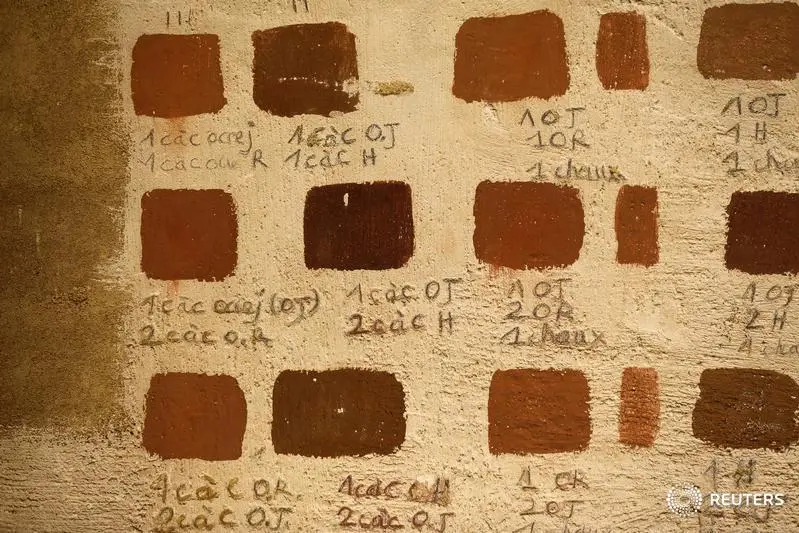 1 càc ocrej
1 càc ocre R
1 càc O.J
1 càc H
1 OJ
1 OR
1 chaux
1 OJ
1 H
1 càc ocrej (OJ)
2 càc O.R
1 càc OJ
2 càc H
1 OJ
2 OR
1 chaux
1 OJ
2 H
1 càc O.R.
2 càc O.J.
1 càc H
2 càc O.J
1 OR
2 OJ
1 H
REUTERS